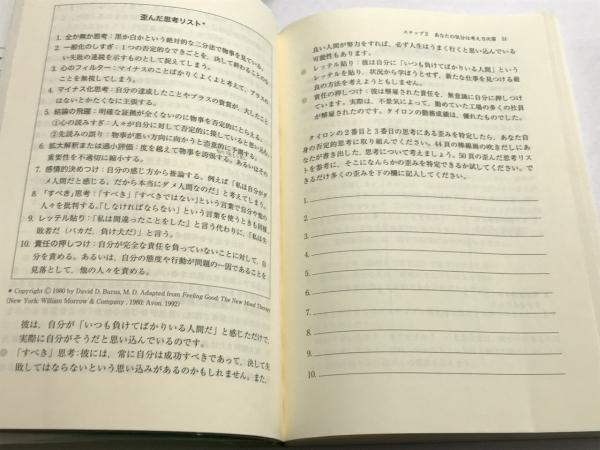 歪んだ思考リスト*
1. 全か無か思考：黒か白かという絶対的な二分法で物事を見ている。
2. 一般化のしすぎ：1つの否定的なできごとを、決して終わることのな
い失敗の連続を示すものとして捉えてしまう。
3. 心のフィルター：マイナスのことばかりくよくよと考えて、プラスの
ことを無視してしまう。
4. マイナス化思考：自分の達成したことやプラスの資質が、大したこと
はないとかたくなに主張する。
5. 結論の飛躍：明確な証拠が全くないのに物事を否定的にとらえる。
①心の読みすぎ：人々が自分に対して否定的に接していると思い込む。
②先読みの誤り：物事が悪い方向に向かうと恣意的に予測する。
6. 拡大解釈または過小評価：度を越えて物事を誇張する。あるいはその
重要性を不適切に縮小する。
7. 感情的決めつけ：自分の感じ方から推論する。例えば「私は自分がダ
メ人間だと感じる。だから本当にダメ人間なのだ」と考えてしまう。
8. 「すべき」思考：「すべき」「すべきではない」という言葉で自分や他の
人々を批判する。「しなければならない」という言葉を使うときも同様。
9. レッテル貼り：「私は間違ったことをした」と言う代わりに、「私は失
敗者だ（バカだ、負け犬だ）」と言う。
10. 責任の押しつけ：自分が完全な責任を負っていないことに対して、自
分を責める。あるいは、自分の態度や行動が問題の一因であることを
見落として、他の人々を責める。
* Copyright © 1980 by David D. Burns, M. D. Adapted from Feeling Good: The New Mood Therapy
(New York: William Morrow & Company, 1980; Avon, 1992)
彼は、自分が「いつも負けてばかりいる人間だ」と感じただけで、
実際に自分がそうだと思い込んでいるのです。
「すべき」思考：彼には、常に自分は成功すべきであって、決して失
敗してはならないという思い込みがあるのかもしれません。また、
ステップ2 あなたの気分は考え方次第 51
良い人間が努力をすれば、必ず人生はうまく行くと思い込んでいる
可能性もあります。
レッテル貼り：彼は自分に「いつも負けてばかりいる人間」という
レッテルを貼り、状況から学ぼうとせず、新たな仕事を見つける最
良の方法を考えようともしません。
責任の押しつけ：彼は解雇された責任を、無意識に自分に押しつけ
ています。実際は、不景気によって、勤めていた工場の多くの社員
が解雇されたのです。タイロンの勤務成績は、優れたものでした。
タイロンの2番目と3番目の思考にある歪みを特定したら、あなた自
身の否定的思考に取り組んでください。44頁の棒線画の吹きだしにあ
なたが書き出した、思考について考えましょう。50頁の歪んだ思考リス
トを参考に、そこになんらかの歪みを特定できるか試してください。で
きるだけ多くの歪みを下の欄に記入してください。
1.
2.
3.
4.
5.
6.
7.
8.
9.
10.